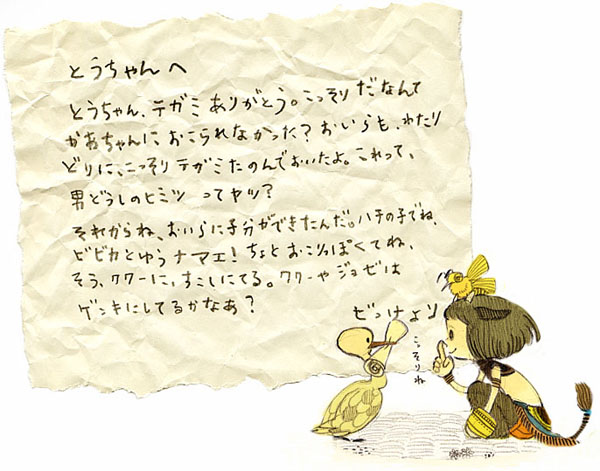 とうちゃんへ
とうちゃん、テガミありがとう。こっそりだなんて
かあちゃんにおこられなかった？おいらも、わたり
どりに、こっそりテガミたのんでおいたよ。これって、
男どうしのヒミツってヤツ？
それからね、おいらに子分ができたんだ。ハチの子でね、
ビビカとゆうナマエ！ちょとおこりっぽくてね、
そう、クワーに、すこしにてる。クワーやジョゼは
ゲンキにしてるかなあ？
ぜっけより
こっそりね